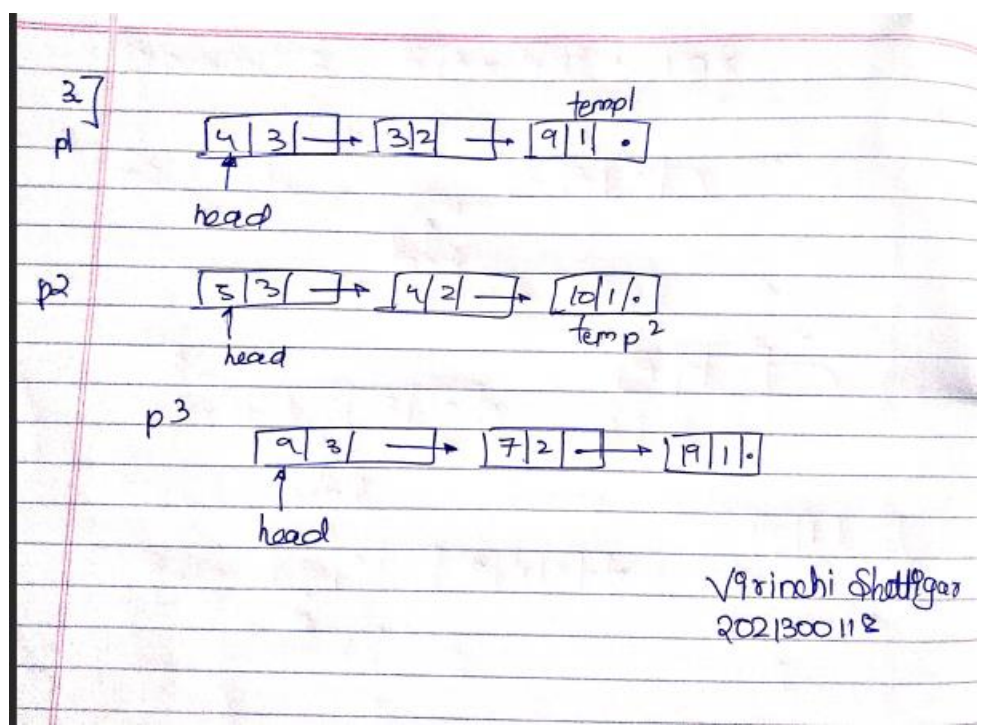 3]
temp1
p1 4 3 3 2 9 1
head
p2 5 3 4 2 10 1
head temp2
p3
9 3 7 2 19 1
head
Virinchi Shettigar
2021300118